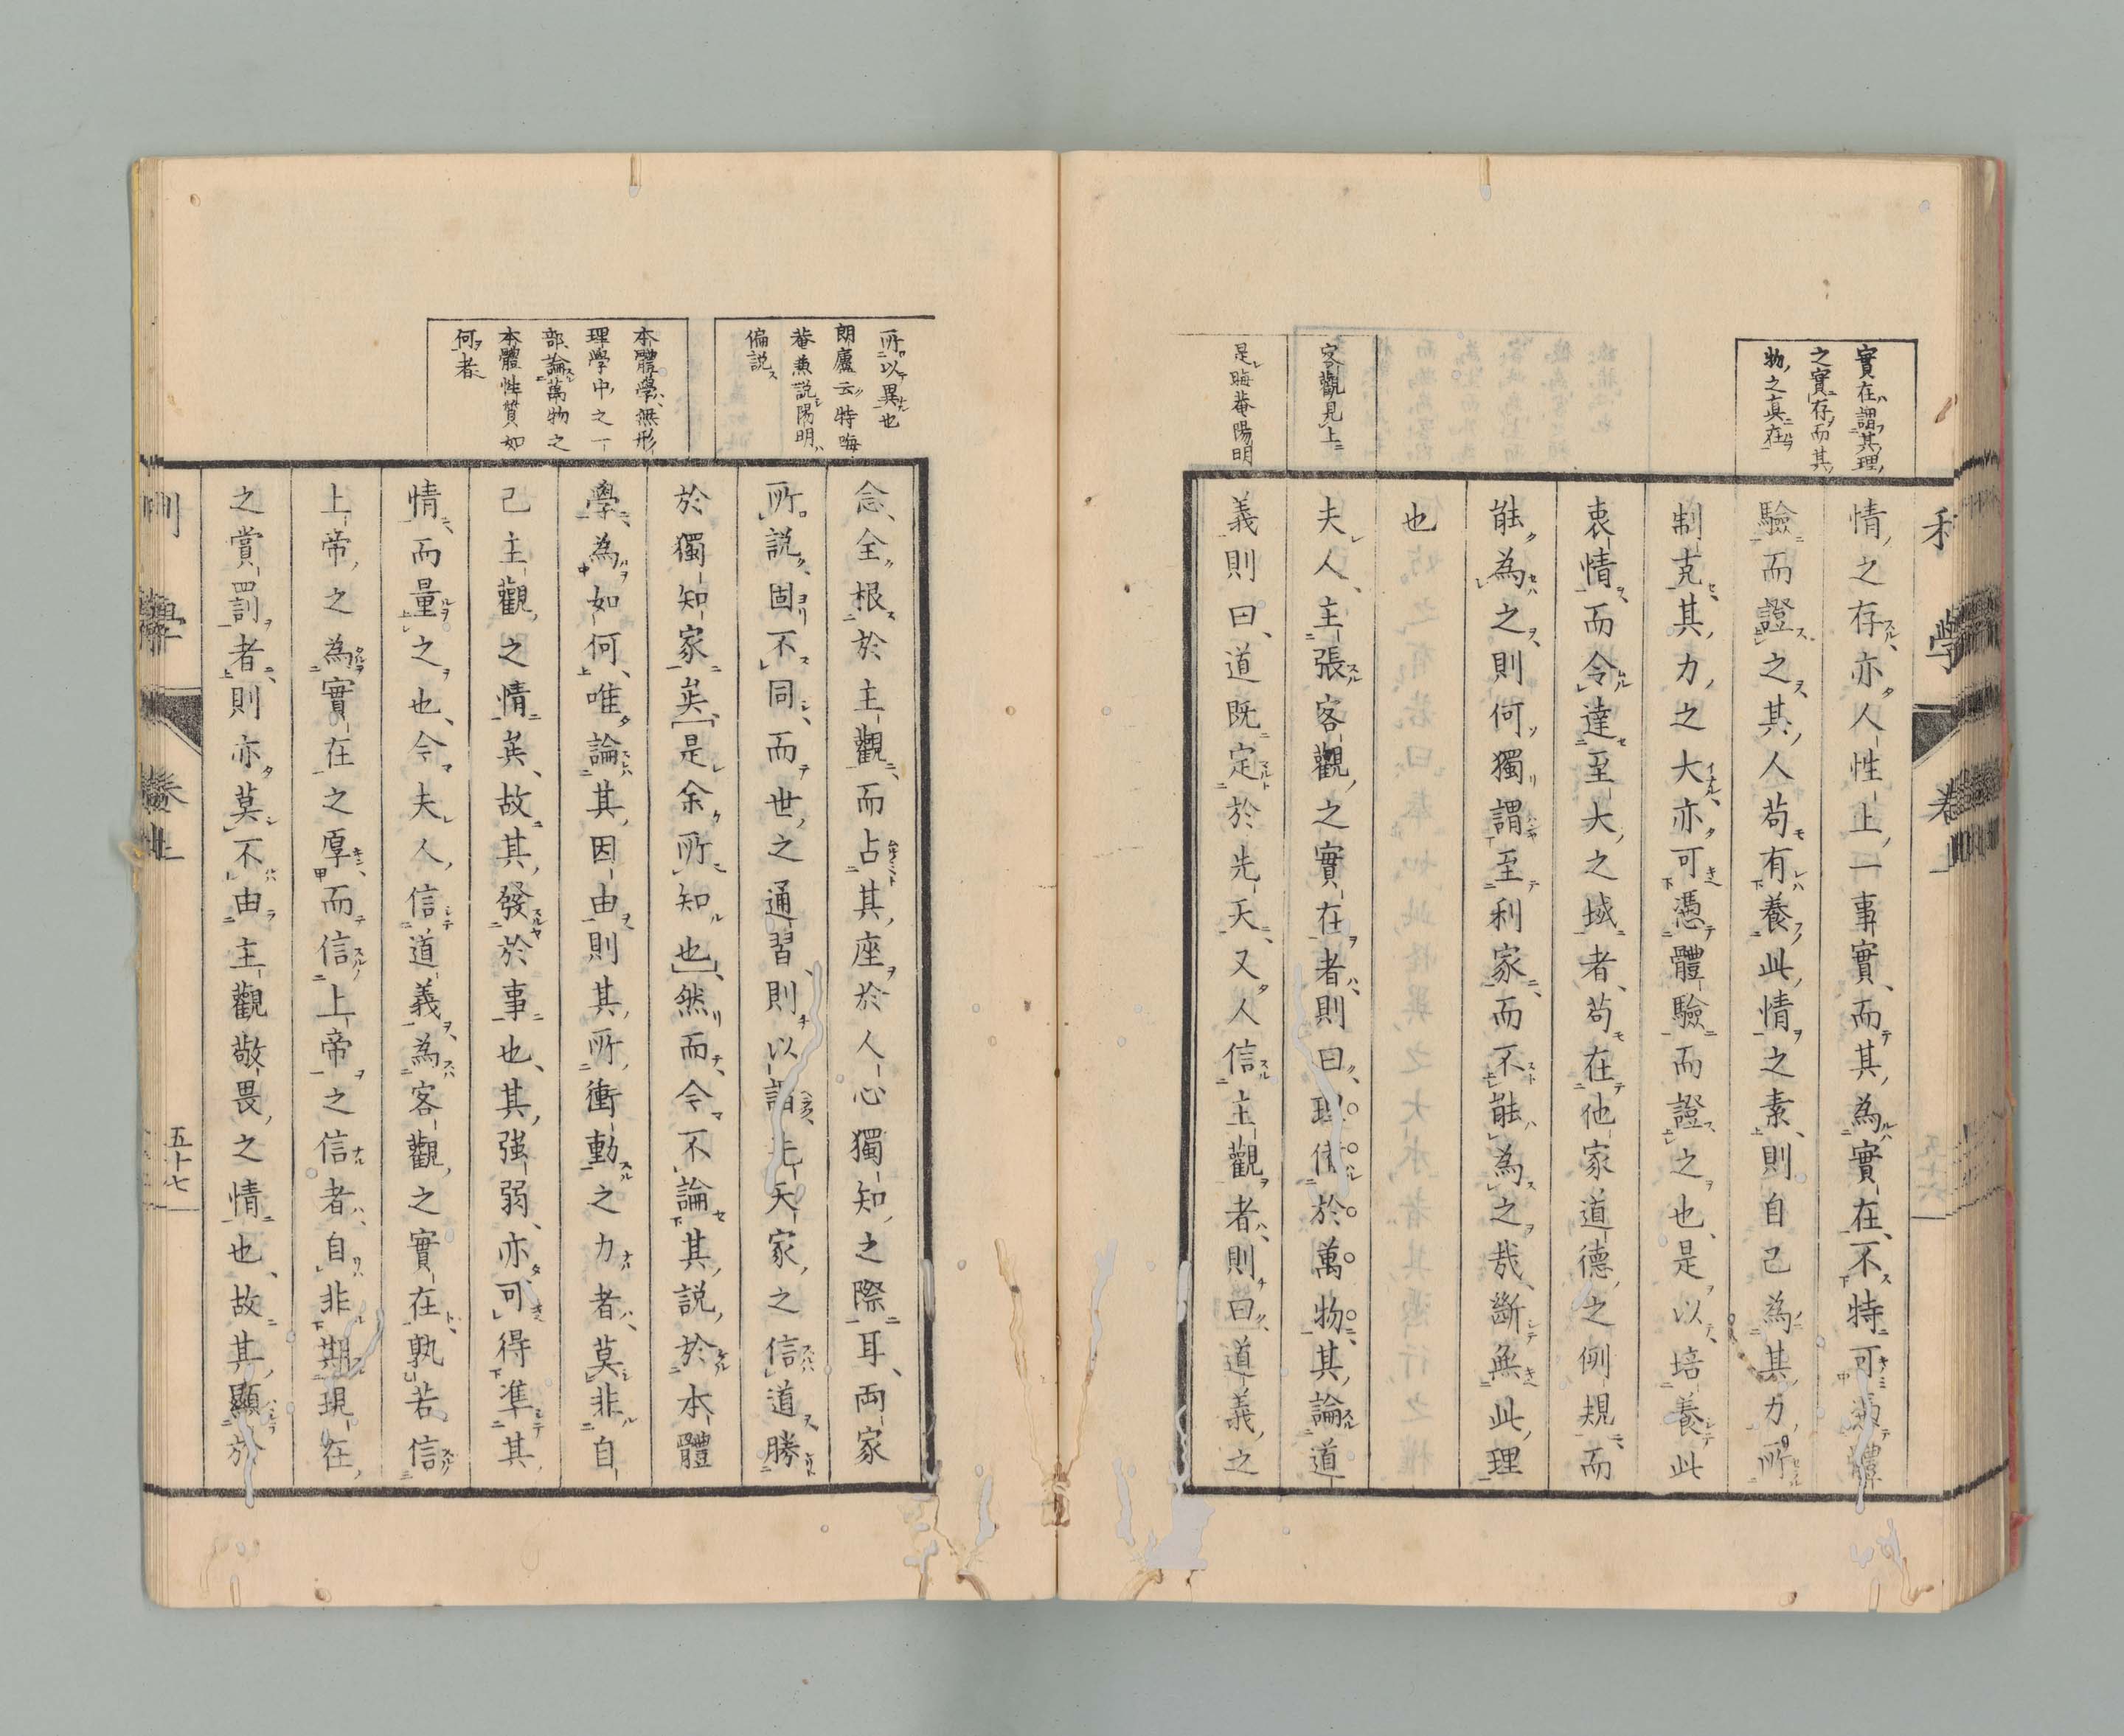 實在謂其理
之實存而其
物之真在
情之存亦人性上一事實而其為實在不特可憑體
驗而證之其人苟有養此情之素則自己為其力所
制克其力之大亦可憑體驗而證之也是以培養此
衷情而令達至大之域者苟在他家道德之例規而
能為之則何獨謂至利家而不能為之哉斷無此理
也
客觀見上
夫人主張客觀之實在者則曰理借於萬物其論道
是晦菴陽明
義則曰道既定於先天又人信主觀者則曰道義之
利學 卷上
所以異也
朗廬云特晦
菴兼説陽明
偏説
念全根於主觀而占其座於人心獨知之際耳両家
所説固不同而世之通習則以謂先天家之信道勝
於獨知家矣是余所知也然而今不論其説於本體
本體學無形
理學中之一
部論萬物之
本體性質如
何者
學為如何唯論其因由則其所衝動之力者莫非自
己主觀之情矣故其發於事也其强弱亦可得準其
情而量之也今夫人信道義為客觀之實在孰若信
上帝之為實在之厚而信上帝之信者自非期現在
之賞罰者則亦莫不由主觀敬畏之情也故其顯於
利學 卷上 五十七